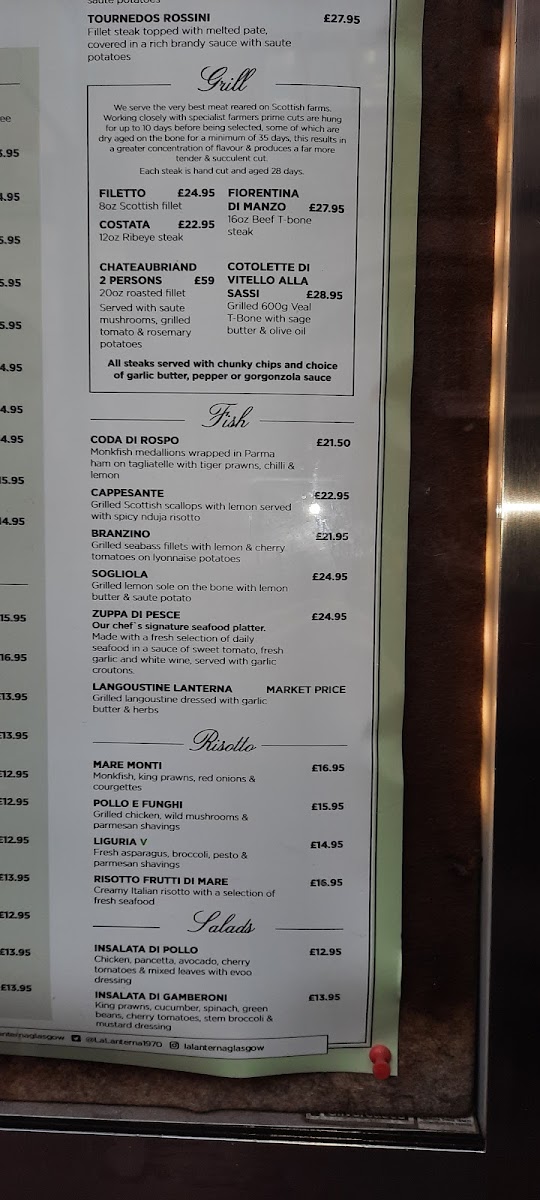 saute potatoes
TOURNEDOS ROSSINI £27.95
Fillet steak topped with melted pate,
covered in a rich brandy sauce with saute
potatoes
Grill
We serve the very best meat reared on Scottish farms.
Working closely with specialist farmers prime cuts are hung
for up to 10 days before being selected, some of which are
dry aged on the bone for a minimum of 35 days, this results in
a greater concentration of flavour & produces a far more
tender & succulent cut.
Each steak is hand cut and aged 28 days.
FILETTO £24.95
8oz Scottish fillet
COSTATA £22.95
12oz Ribeye steak
FIORENTINA
DI MANZO £27.95
16oz Beef T-bone
steak
CHATEAUBRIAND
2 PERSONS £59
20oz roasted fillet
Served with saute
mushrooms, grilled
tomato & rosemary
potatoes
COTOLETTE DI
VITELLO ALLA
SASSI £28.95
Grilled 600g Veal
T-Bone with sage
butter & olive oil
All steaks served with chunky chips and choice
of garlic butter, pepper or gorgonzola sauce
Fish
CODA DI ROSPO £21.50
Monkfish medallions wrapped in Parma
ham on tagliatelle with tiger prawns, chilli &
lemon
CAPPESANTE £22.95
Grilled Scottish scallops with lemon served
with spicy nduja risotto
BRANZINO £21.95
Grilled seabass fillets with lemon & cherry
tomatoes on lyonnaise potatoes
SOGLIOLA £24.95
Grilled lemon sole on the bone with lemon
butter & saute potato
ZUPPA DI PESCE £24.95
Our chef's signature seafood platter.
Made with a fresh selection of daily
seafood in a sauce of sweet tomato, fresh
garlic and white wine, served with garlic
croutons.
LANGOUSTINE LANTERNA MARKET PRICE
Grilled langoustine dressed with garlic
butter & herbs
Risotto
MARE MONTI £16.95
Monkfish, king prawns, red onions &
courgettes
POLLO E FUNGHI £15.95
Grilled chicken, wild mushrooms &
parmesan shavings
LIGURIA V £14.95
Fresh asparagus, broccoli, pesto &
parmesan shavings
RISOTTO FRUTTI DI MARE £16.95
Creamy Italian risotto with a selection of
fresh seafood
Salads
INSALATA DI POLLO £12.95
Chicken, pancetta, avocado, cherry
tomatoes & mixed leaves with evoo
dressing
INSALATA DI GAMBERONI £13.95
King prawns, cucumber, spinach, green
beans, cherry tomatoes, stem broccoli &
mustard dressing
anternaglasgow @LaLanterna1970 lalanternaglasgow
ee
5.95
4.95
5.95
5.95
5.95
4.95
4.95
4.95
15.95
14.95
15.95
16.95
£13.95
£13.95
£12.95
£12.95
£12.95
£13.95
£12.95
£13.95
£13.95